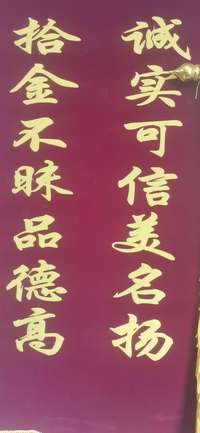 诚实可信美名扬
拾金不昧品德高